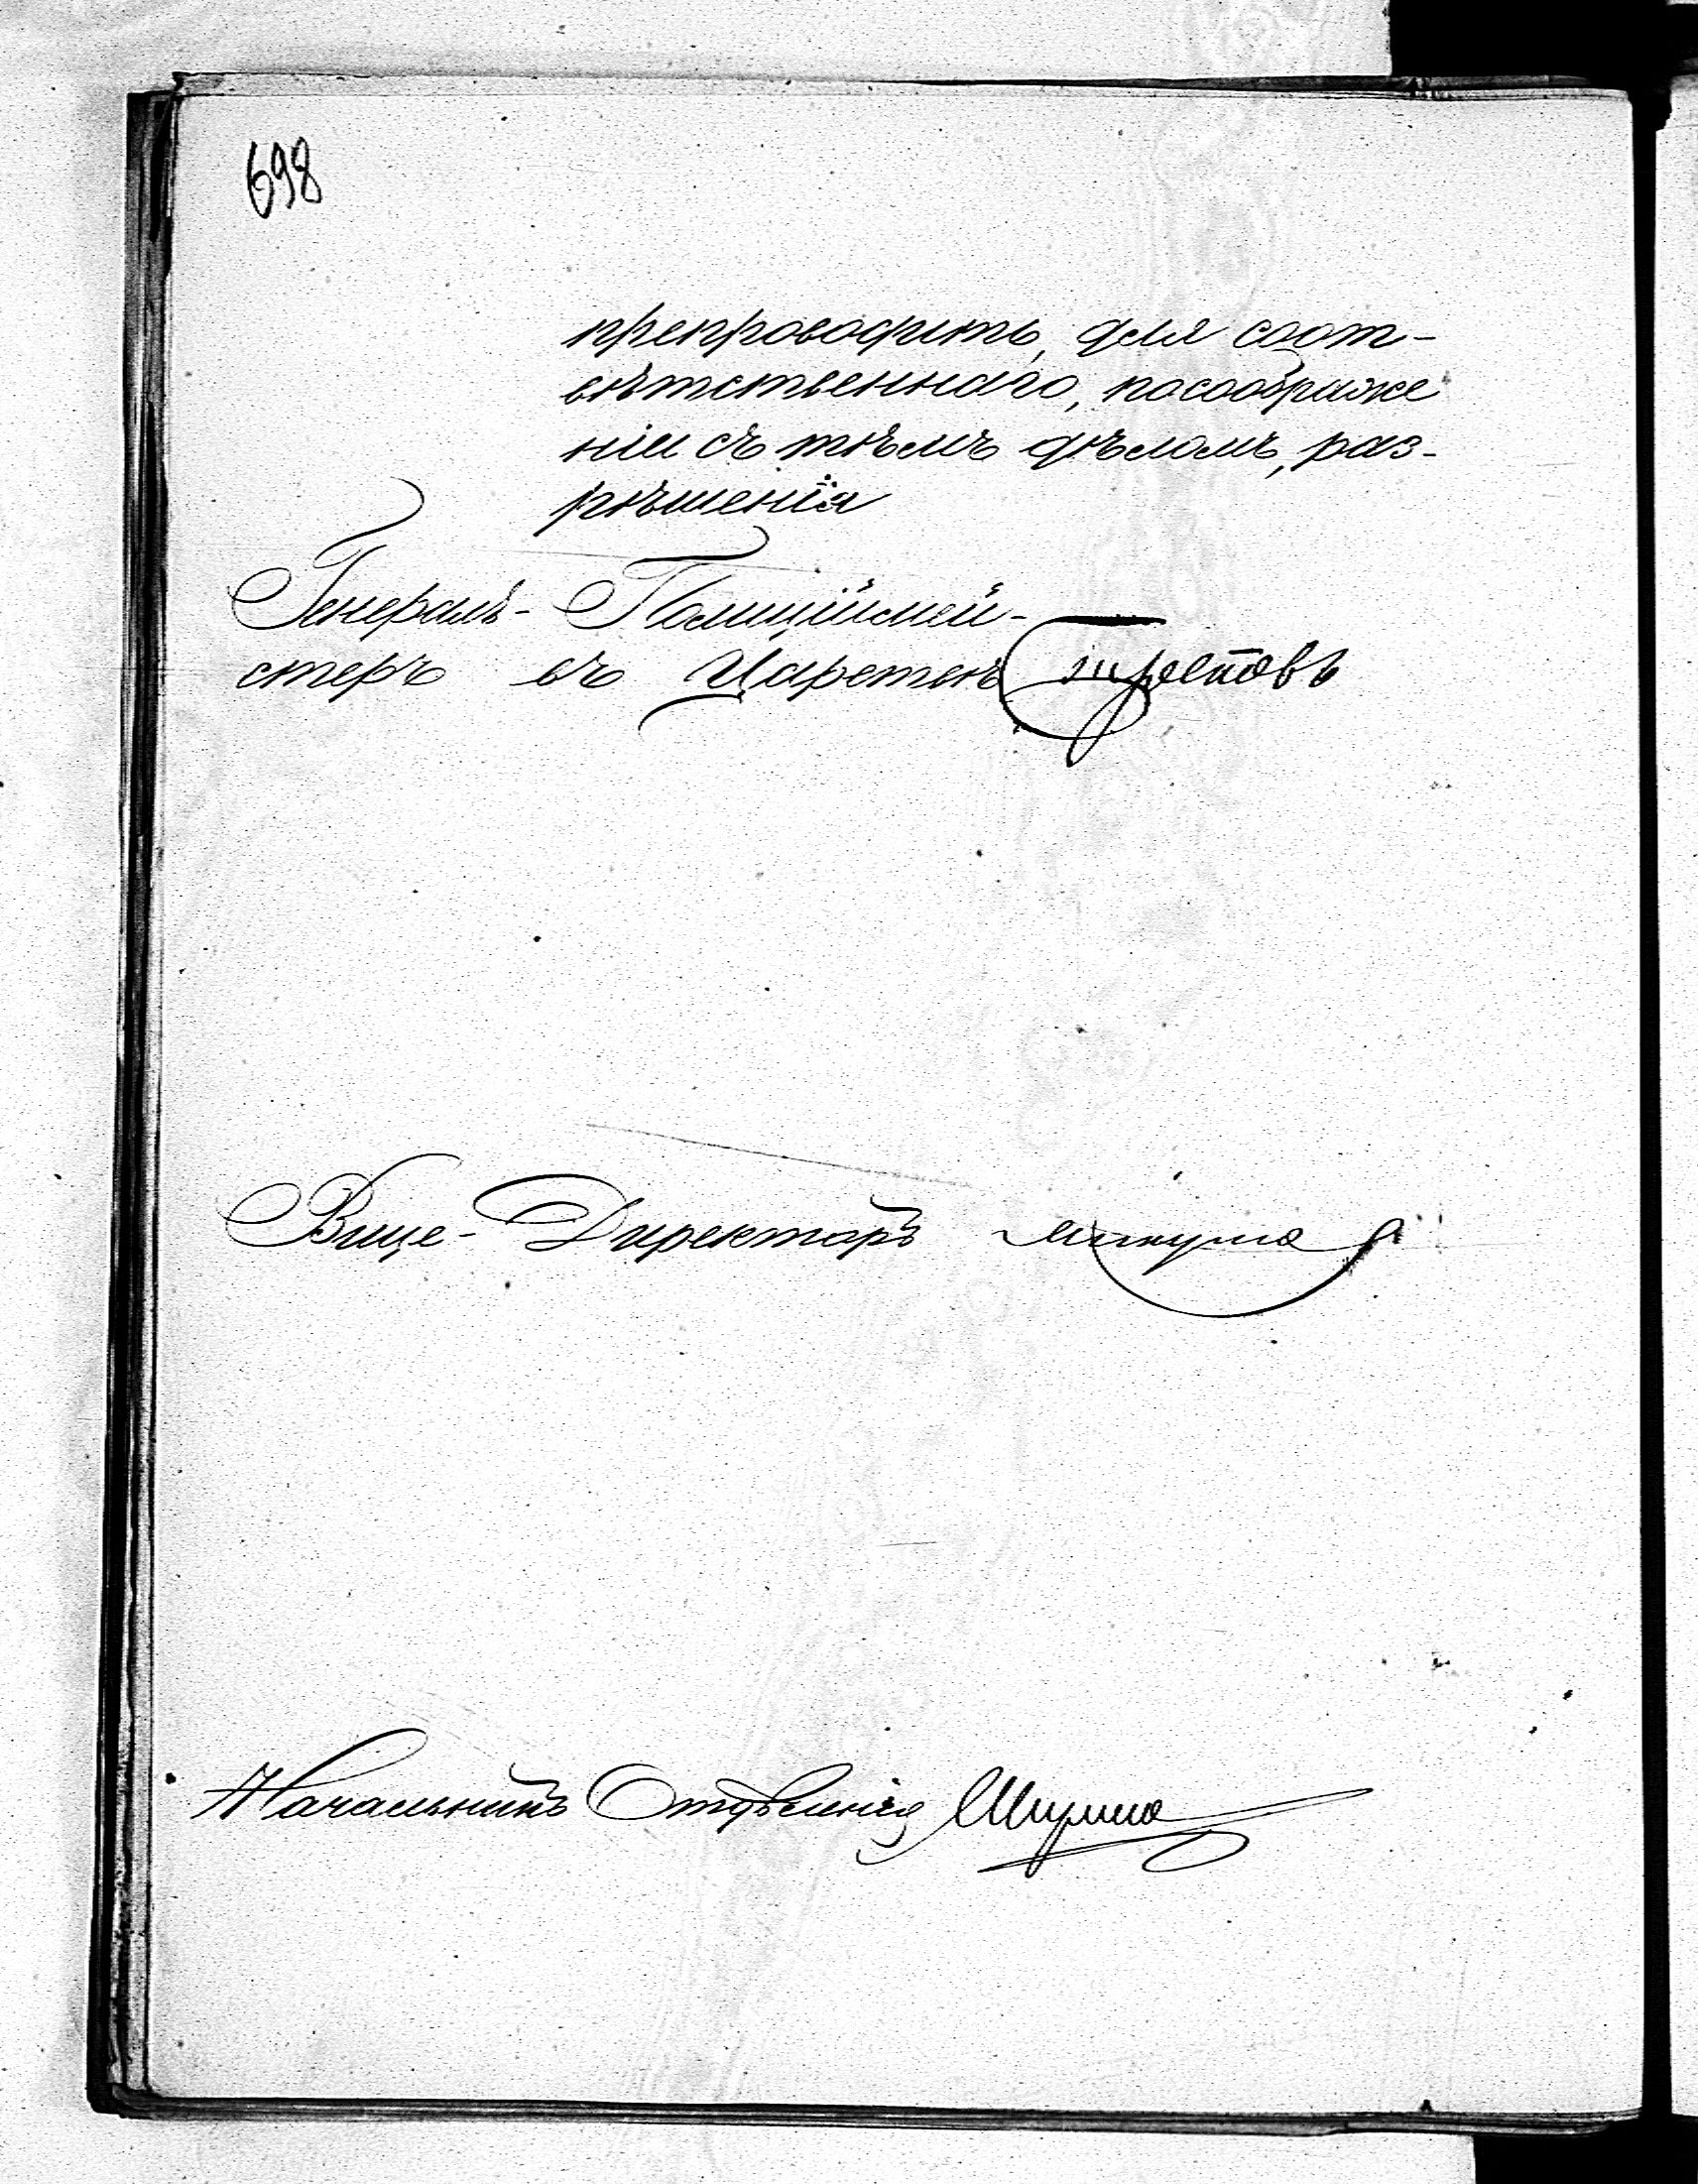 698
препроводить, для соот-
вѣтственнаго, по соображе
ніи съ тѣмъ дѣломъ, раз-
рѣшенія
Генералъ-Полиційймей-
стеръ въ Царствѣ Треповъ
Вице-Директоръ
Начальникъ Отдѣленія